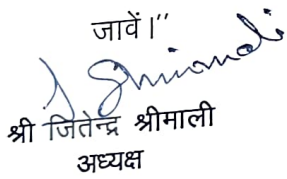 जावें।”
श्री जितेन्द्र श्रीमाली
अध्यक्ष